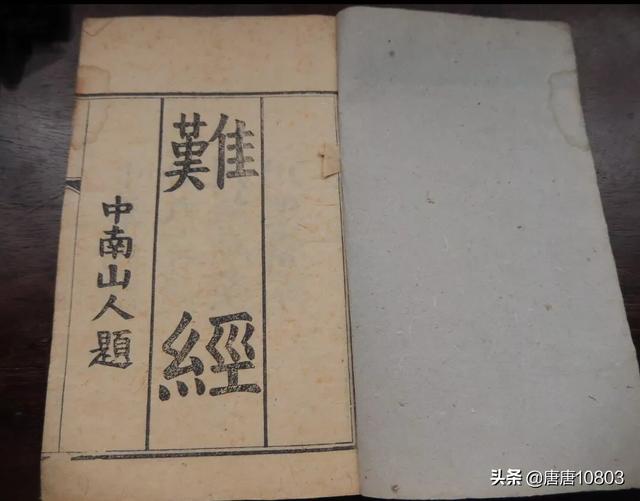 難經
中南山人題
头条 @唐唐10803